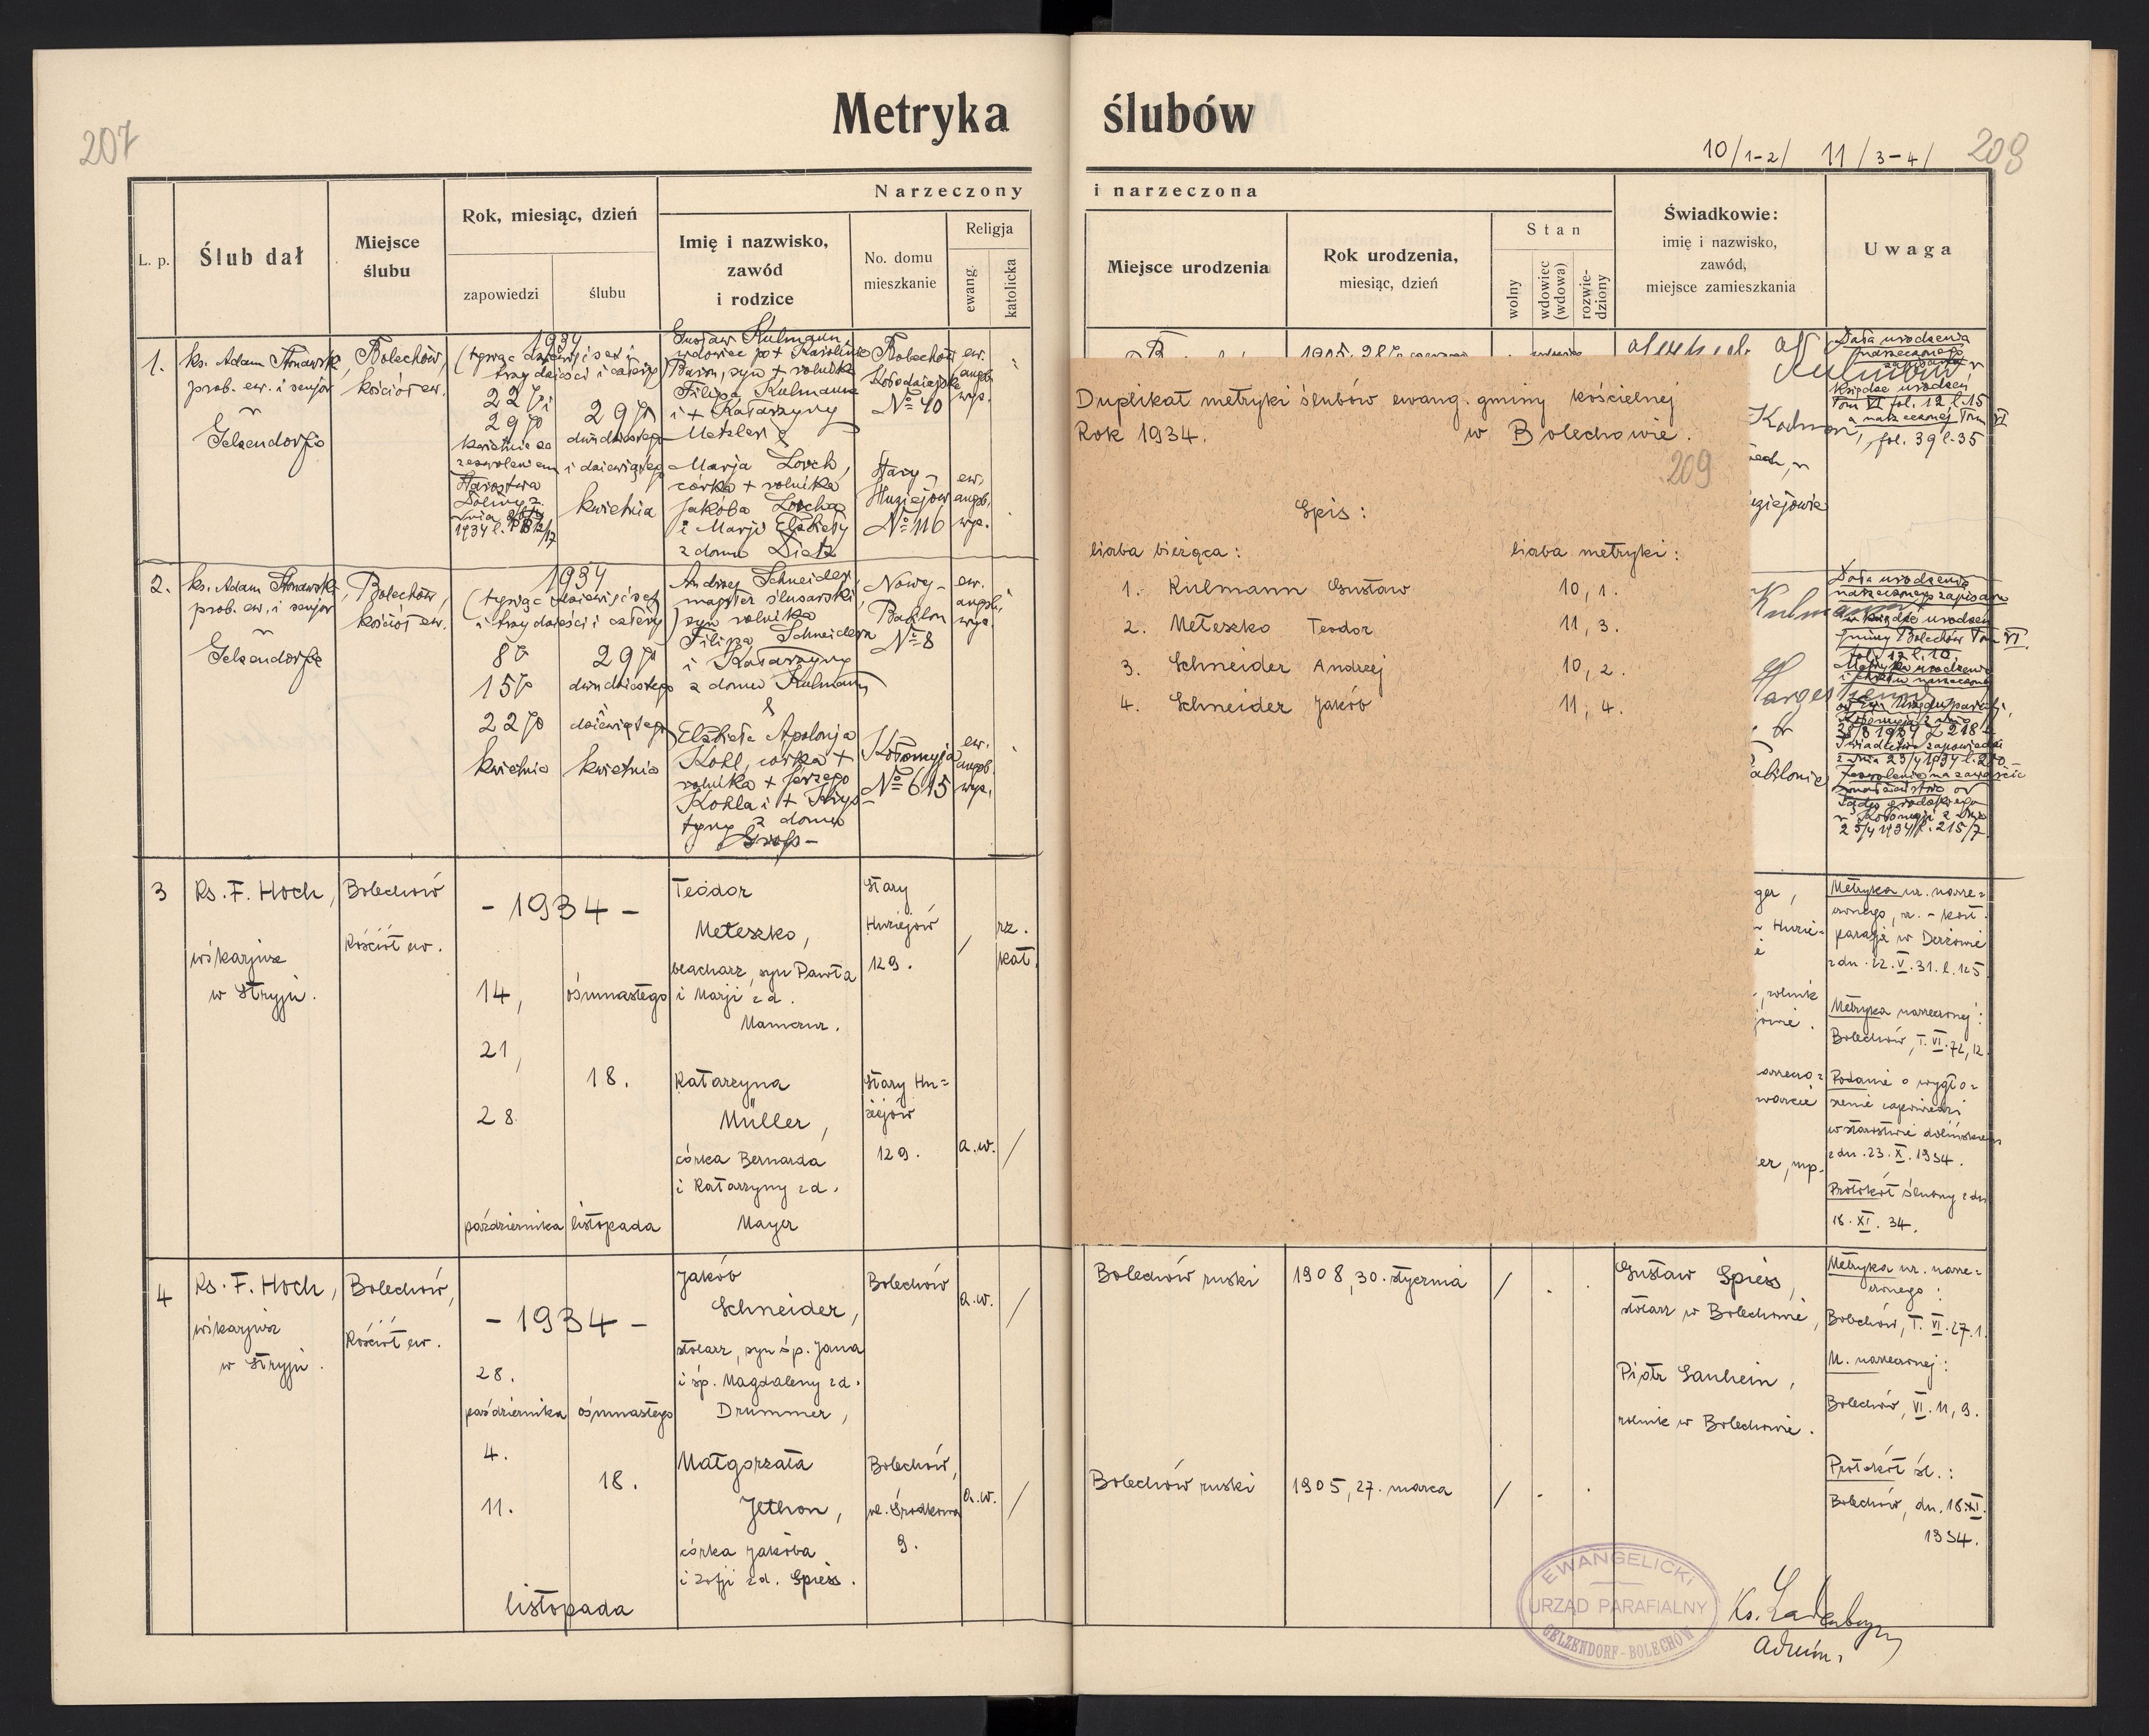 207
Metryka ślubów
10/1-2/ 11/3-4/
209
Narzeczony i narzeczona
L. p.
Ślub dał
Miejsce
ślubu
Rok, miesiąc, dzień
zapowiedzi
ślubu
Imię i nazwisko,
zawód
i rodzice
No. domu
mieszkanie
Religja
ewang.
katolicka
Miejsce urodzenia
Rok urodzenia,
miesiąc, dzień
Stan
wolny
wdowiec
(wdowa)
rozwie-
dziony
Świadkowie:
imię i nazwisko,
zawód,
miejsce zamieszkania
Uwaga
1.
ks. Adam
prob. ew. i senjor
w
Gelsendorfie
Bolechów,
kościół ew.
1934
(tysiąc dziewięćset i
trzydzieści i cztery)
22 i
29
kwietnia za
zezwoleniem
Starostwa
29
dwudziestego
i dziewiątego
kwietnia
Gustaw Kulmann,
wdowiec po + Karolinie
syn + rolnika
Filipa Kulmanna
i + Katarzyny
Metzler
Bolechów
No 40
ew.
augsb.
wyz.
Marja Lorch,
córka + rolnika
Jakóba Lorcha
i Marji Elżbiety
z domu Dietz
Stary
Huziejów
No 116
ew.
augsb.
wyz.
Kulmann
Data urodzenia
narzeczonego
zapisana w
księdze urodzeń
Tom VI fol. 12 l. 15
a narzeczonej Tom VI
fol. 39 l. 35
Duplikat metryki ślubów ewang. gminy kościelnej
Rok 1934. w Bolechowie.
209
Spis:
liczba bieżąca: liczba metryki:
1. Kulmann Gustaw 10, 1.
2. Meteszko Teodor 11, 3.
3. Schneider Andrzej 10, 2.
4. Schneider Jakób 11, 4.
2.
ks. Adam
prob. ew. i senjor
w
Gelsendorfie
Bolechów,
kościół ew.
1934
(tysiąc dziewięćset
i trzydzieści i cztery)
8
15
22
kwietnia
29
dwudziestego
dziewiątego
kwietnia
Andrzej Schneider,
majster ślusarski,
syn rolnika
Filipa Schneidera
i Katarzyny
z domu Kulmann
Nowy-
Babilon
No 8
ew.
augsb.
wyz.
Elżbieta Apolonja
Kohl, córka +
rolnika + Jerzego
Kohla i + Krys
tyny z domu
Kołomyja
No 615
ew.
augsb.
wyz.
Kulmann
Data urodzenia
narzeczonego zapisana
w księdze urodzeń
gminy Bolechów Tom VI
fol. 12 l. 10.
3
Ks. F. Hoch,
wikarjusz
w Stryju.
Bolechów
Kościół ew.
- 1934 -
14,
21,
28.
października
ósmnastego
18.
listopada
Teodor
Meteszko,
blacharz, syn Pawła
i Marji z d.
Mamczur.
Stary
Huziejów
129.
/
rz.
kat.
Katarzyna
Müller,
córka Bernarda
i Katarzyny z d.
Mayer
Stary Hu=
ziejów
129.
a.w. /
Metryka ur. narze=
czonego, rz. - kat.
parafja w Derżowie
z dn. 22. V. 31. l. 125.
Metryka narzeczonej:
Bolechów, T. VI. 72, 12.
Podanie o wygło=
szenie zapowiedzi
w starostwie dolińskiem
z dn. 23. X. 1934.
Protokół ślubny z dn.
18. XI. 34.
4
Ks. F. Hoch,
wikarjusz
w Stryju.
Bolechów,
Kościół ew.
- 1934 -
28.
października
4.
11.
listopada
ósmnastego
18.
Jakób
Schneider,
stolarz, syn śp. Jana
i śp. Magdaleny z d.
Drummer,
Bolechów
a.w. /
Małgorzata
Jethon,
córka Jakóba
i Zofji z d. Spiess.
Bolechów,
ul. Środkowa
9.
a.w. /
Bolechów ruski
1908, 30. stycznia
/ . .
Bolechów ruski
1905, 27. marca
/ - .
Gustaw Spiess,
stolarz w Bolechowie,
Piotr Sauhein,
rolnik w Bolechowie.
Metryka ur. narze=
czonego:
Bolechów, T. VI. 27. 1.
M. narzeczonej:
Bolechów, VI. 11, 9.
Protokół śl.:
Bolechów, dn. 18. XI.
1934.
EWANGELICKI
URZĄD PARAFIALNY
GELZENDORF-BOLECHÓW
Ks.
Admin.